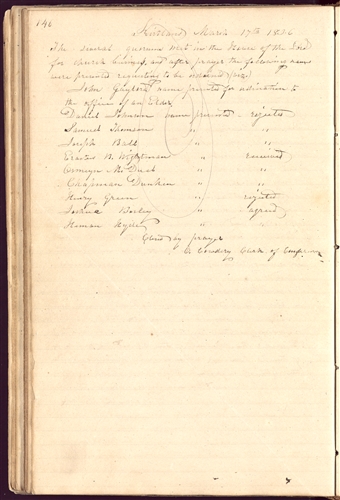 146
Kirtland March 17th 1836
The several quorums met in the House of the Lord
for church business, and after prayer the following names
were presented requesting to be ordained (viz)
John Gaylord name presented for ordination to
the office of an Elder
Daniel Johnson name presented - rejected
Samuel Thomson " "
Joseph Ball " "
Erastus B. Wightman " received
Osmyn M. Duel " "
Chapman Duncan " "
Henry Green " rejected
Joshua Bosley " agreed
Heman Hyde " "
Closed by prayer
O. Cowdery Clerk of Conference